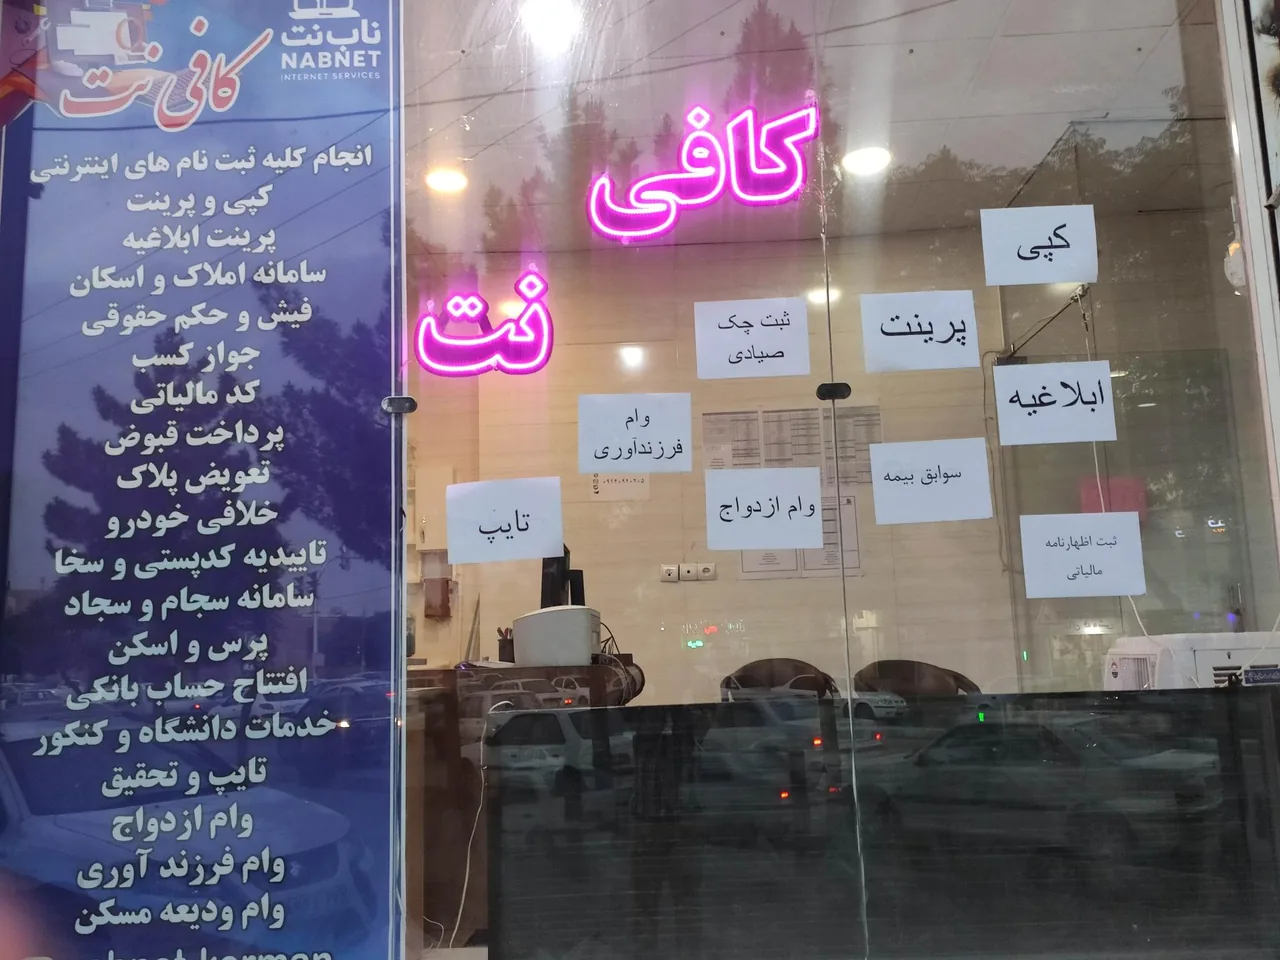 ناب نت
NABNET
INTERNET SERVICES
کافی نت
انجام کلیه ثبت نام های اینترنتی
کپی و پرینت
پرینت ابلاغیه
سامانه املاک و اسکان
فیش و حکم حقوقی
جواز کسب
کد مالیاتی
پرداخت قبوض
تعویض پلاک
خلافی خودرو
تاییدیه کدپستی و سخا
سامانه سجام و سجاد
پرس و اسکن
افتتاح حساب بانکی
خدمات دانشگاه و کنکور
تایپ و تحقیق
وام ازدواج
وام فرزند آوری
وام ودیعه مسکن
کافی
نت
کپی
پرینت
ثبت چک
صیادی
ابلاغیه
وام
فرزندآوری
سوابق بیمه
وام ازدواج
تایپ
ثبت اظهارنامه
مالیاتی